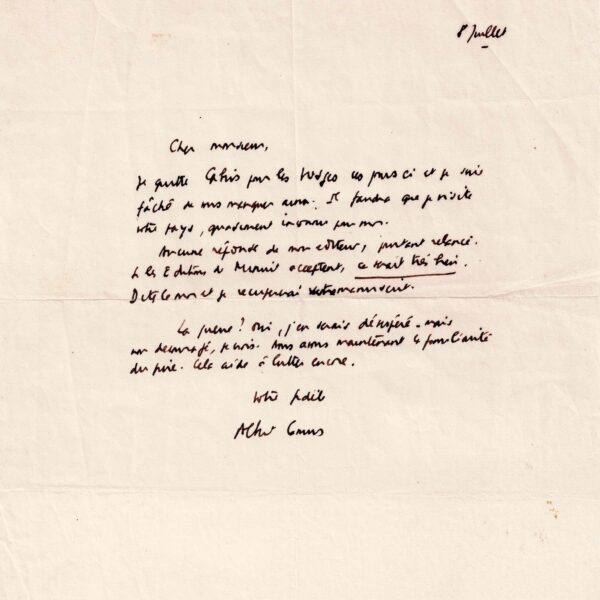 8 Juillet
Cher monsieur,
Je quitte Cabris pour les Vosges ces jours ci et je suis
fâché de vous manquer ainsi. Il faudra que je visite
votre pays, quasiment inconnu pour moi.
Aucune réponse de mon éditeur, pourtant relancé.
Si les Editions de Minuit acceptent, ce serait très bien.
Dites le moi et je récupérerai votre manuscrit.
La guerre? Oui, j'en serais désespéré - mais
non découragé, je crois. Nous avons maintenant la familiarité
du pire. Cela aide à lutter encore.
Votre fidèle
Albert Camus